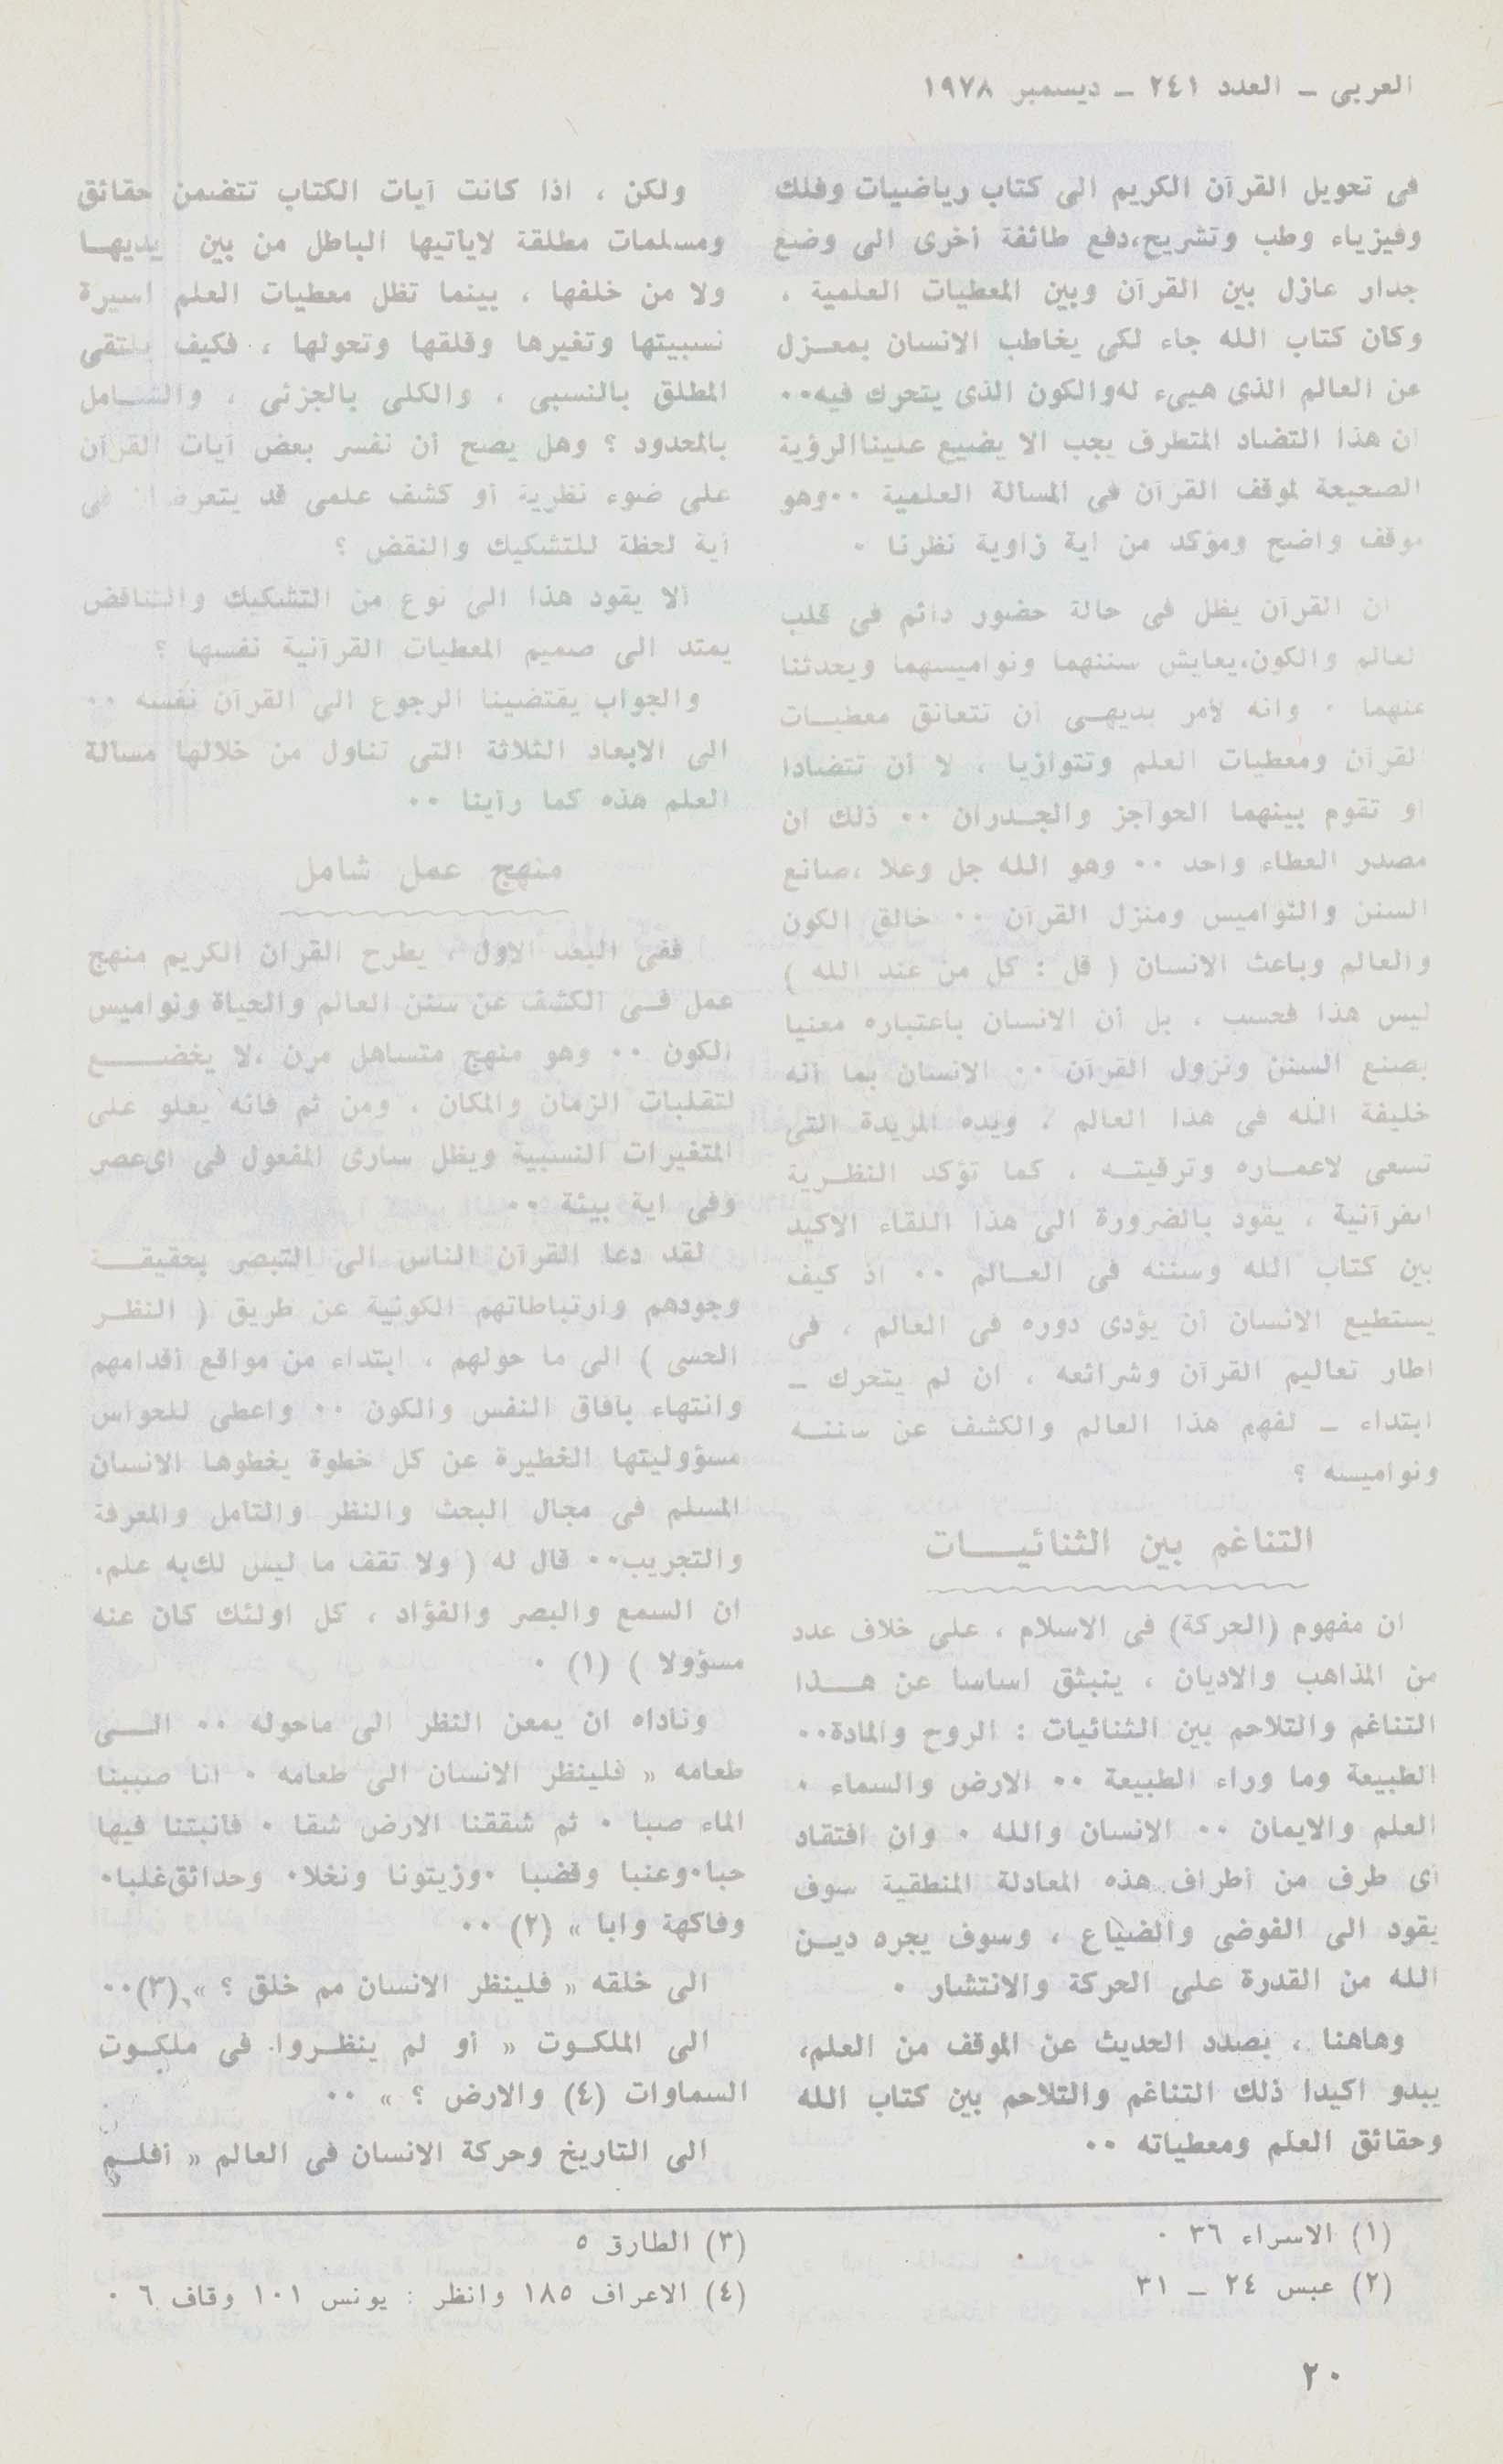 العربى - العدد ٢٤١ - ديسمبر ١٩٧٨
فى تحويل القرآن الكريم الى كتاب رياضيات وفلك
وفيزياء وطب وتشريح،دفع طائفة أخرى الى وضع
جدار عازل بين القرآن وبين المعطيات العلمية ،
وكان كتاب الله جاء لكى يخاطب الانسان بمعـزل
عن العالم الذى هيىء له والكون الذى يتحرك فيه٠٠
ان هذا التضاد المتطرف يجب الا يضيع علينا الرؤية
الصحيحة لموقف القرآن فى المسألة العلمية ٠٠وهو
موقف واضح ومؤكد من اية زاوية نظرنا ٠
ان القرآن يظل فى حالة حضور دائم فى قلب
العالم والكون،يعايش سننهما ونواميسهما ويحدثنا
عنهما ٠ وانه لأمر بديهـى ان تتعانق معطيـات
القرآن ومعطيات العلم وتتوازيا ، لا أن تتضادا
او تقوم بينهما الحواجز والجـدران ٠٠ ذلك ان
مصدر العطاء واحد ٠٠ وهو الله جل وعلا ،صانع
السنن والنواميس ومنزل القرآن ٠٠ خالق الكون
والعالم وباعث الانسان ( قل : كل من عند الله )
ليس هذا فحسب ، بل أن الانسان باعتباره معنيا
بصنع السنن ونزول القرآن ٠٠ الانسان بما أنه
خليفة الله فى هذا العالم ، ويده المريدة التى
تسعى لاعمـاره وترقيتـه ، كما تؤكد النظـرية
القرآنية ، يقود بالضرورة الى هذا اللقاء الاكيد
بين كتاب الله وسننه فى العـالم ٠٠ اذ كيف
يستطيع الانسان أن يؤدى دوره فى العالم ، فى
اطار تعاليم القرآن وشرائعه ، ان لم يتحرك -
ابتداء - لفهم هذا العالم والكشف عن سننـه
ونواميسه ؟
التناغم بين الثنائيـــات
ان مفهوم (الحركة) فى الاسلام ، على خلاف عدد
من المذاهب والاديان ، ينبثق اساسا عن هــذا
التناغم والتلاحم بين الثنائيات : الروح والمادة٠٠
الطبيعة وما وراء الطبيعة ٠٠ الارض والسماء ٠
العلم والايمان ٠٠ الانسان والله ٠ وان افتقاد
أى طرف من أطراف هذه المعادلة المنطقية سوف
يقود الى الفوضى والضياع ، وسوف يجره ديـن
الله من القدرة على الحركة والانتشار ٠
وهاهنا ، بصدد الحديث عن الموقف من العلم،
يبدو اكيدا ذلك التناغم والتلاحم بين كتاب الله
وحقائق العلم ومعطياته ٠٠
ولكن ، اذا كانت آيات الكتاب تتضمن حقائق
ومسلمات مطلقة لايأتيها الباطل من بين يديهـا
ولا من خلفها ، بينما تظل معطيات العلم اسيرة
نسبيتها وتغيرها وقلقها وتحولها ، فكيف يلتقى
المطلق بالنسبى ، والكلى بالجزئى ، والشـامل
بالمحدود ؟ وهل يصح أن نفسر بعض آيات القرآن
على ضوء نظرية أو كشف علمى قد يتعرضان فى
أية لحظة للتشكيك والنقض ؟
ألا يقود هذا الى نوع من التشكيك والتناقض
يمتد الى صميم المعطيات القرآنية نفسها ؟
والجواب يقتضينا الرجوع الى القرآن نفسه ٠٠
الى الابعاد الثلاثة التى تناول من خلالها مسألة
العلم هذه كما رأينا ٠٠
منهج عمل شامل
ففى البعد الاول ، يطرح القرآن الكريم منهج
عمل فـى الكشف عن سنن العالم والحياة ونواميس
الكون ٠٠ وهو منهج متساهل مرن ،لا يخضــع
لتقلبات الزمان والمكان ، ومن ثم فانه يعلو على
المتغيرات النسبية ويظل سارى المفعول فى اى عصر
وفى اية بيئة ٠٠
لقد دعا القرآن الناس الى التبصر بحقيقــة
وجودهم وارتباطاتهم الكونية عن طريق ( النظـر
الحسى ) الى ما حولهم ، ابتداء من مواقع أقدامهم
وانتهاء بآفاق النفس والكون ٠٠ واعطى للحواس
مسؤوليتها الخطيرة عن كل خطوة يخطوها الانسان
المسلم فى مجال البحث والنظر والتأمل والمعرفة
والتجريب٠٠ قال له ( ولا تقف ما ليس لك به علم،
ان السمع والبصر والفؤاد ، كل اولئك كان عنه
مسؤولا ) (١) ٠
وناداه ان يمعن النظر الى ماحوله ٠٠ الــى
طعامه « فلينظر الانسان الى طعامه ٠ انا صببنا
الماء صبا ٠ ثم شققنا الارض شقا ٠ فانبتنا فيها
حبا٠وعنبا وقضبا ٠وزيتونا ونخلا٠ وحدائق غلبا٠
وفاكهة وأبا » (٢) ٠٠
الى خلقه « فلينظر الانسان مم خلق ؟ » (٣)٠٠
الى الملكـوت « أو لم ينظـروا فى ملكـوت
السماوات (٤) والارض ؟ » ٠٠
الى التاريخ وحركة الانسان فى العالم « أفلـم
(١) الاسراء ٣٦ ٠
(٢) عبس ٢٤ - ٣١
(٣) الطارق ٥
(٤) الاعراف ١٨٥ وانظر : يونس ١٠١ وقاف ٦ ٠
٢٠